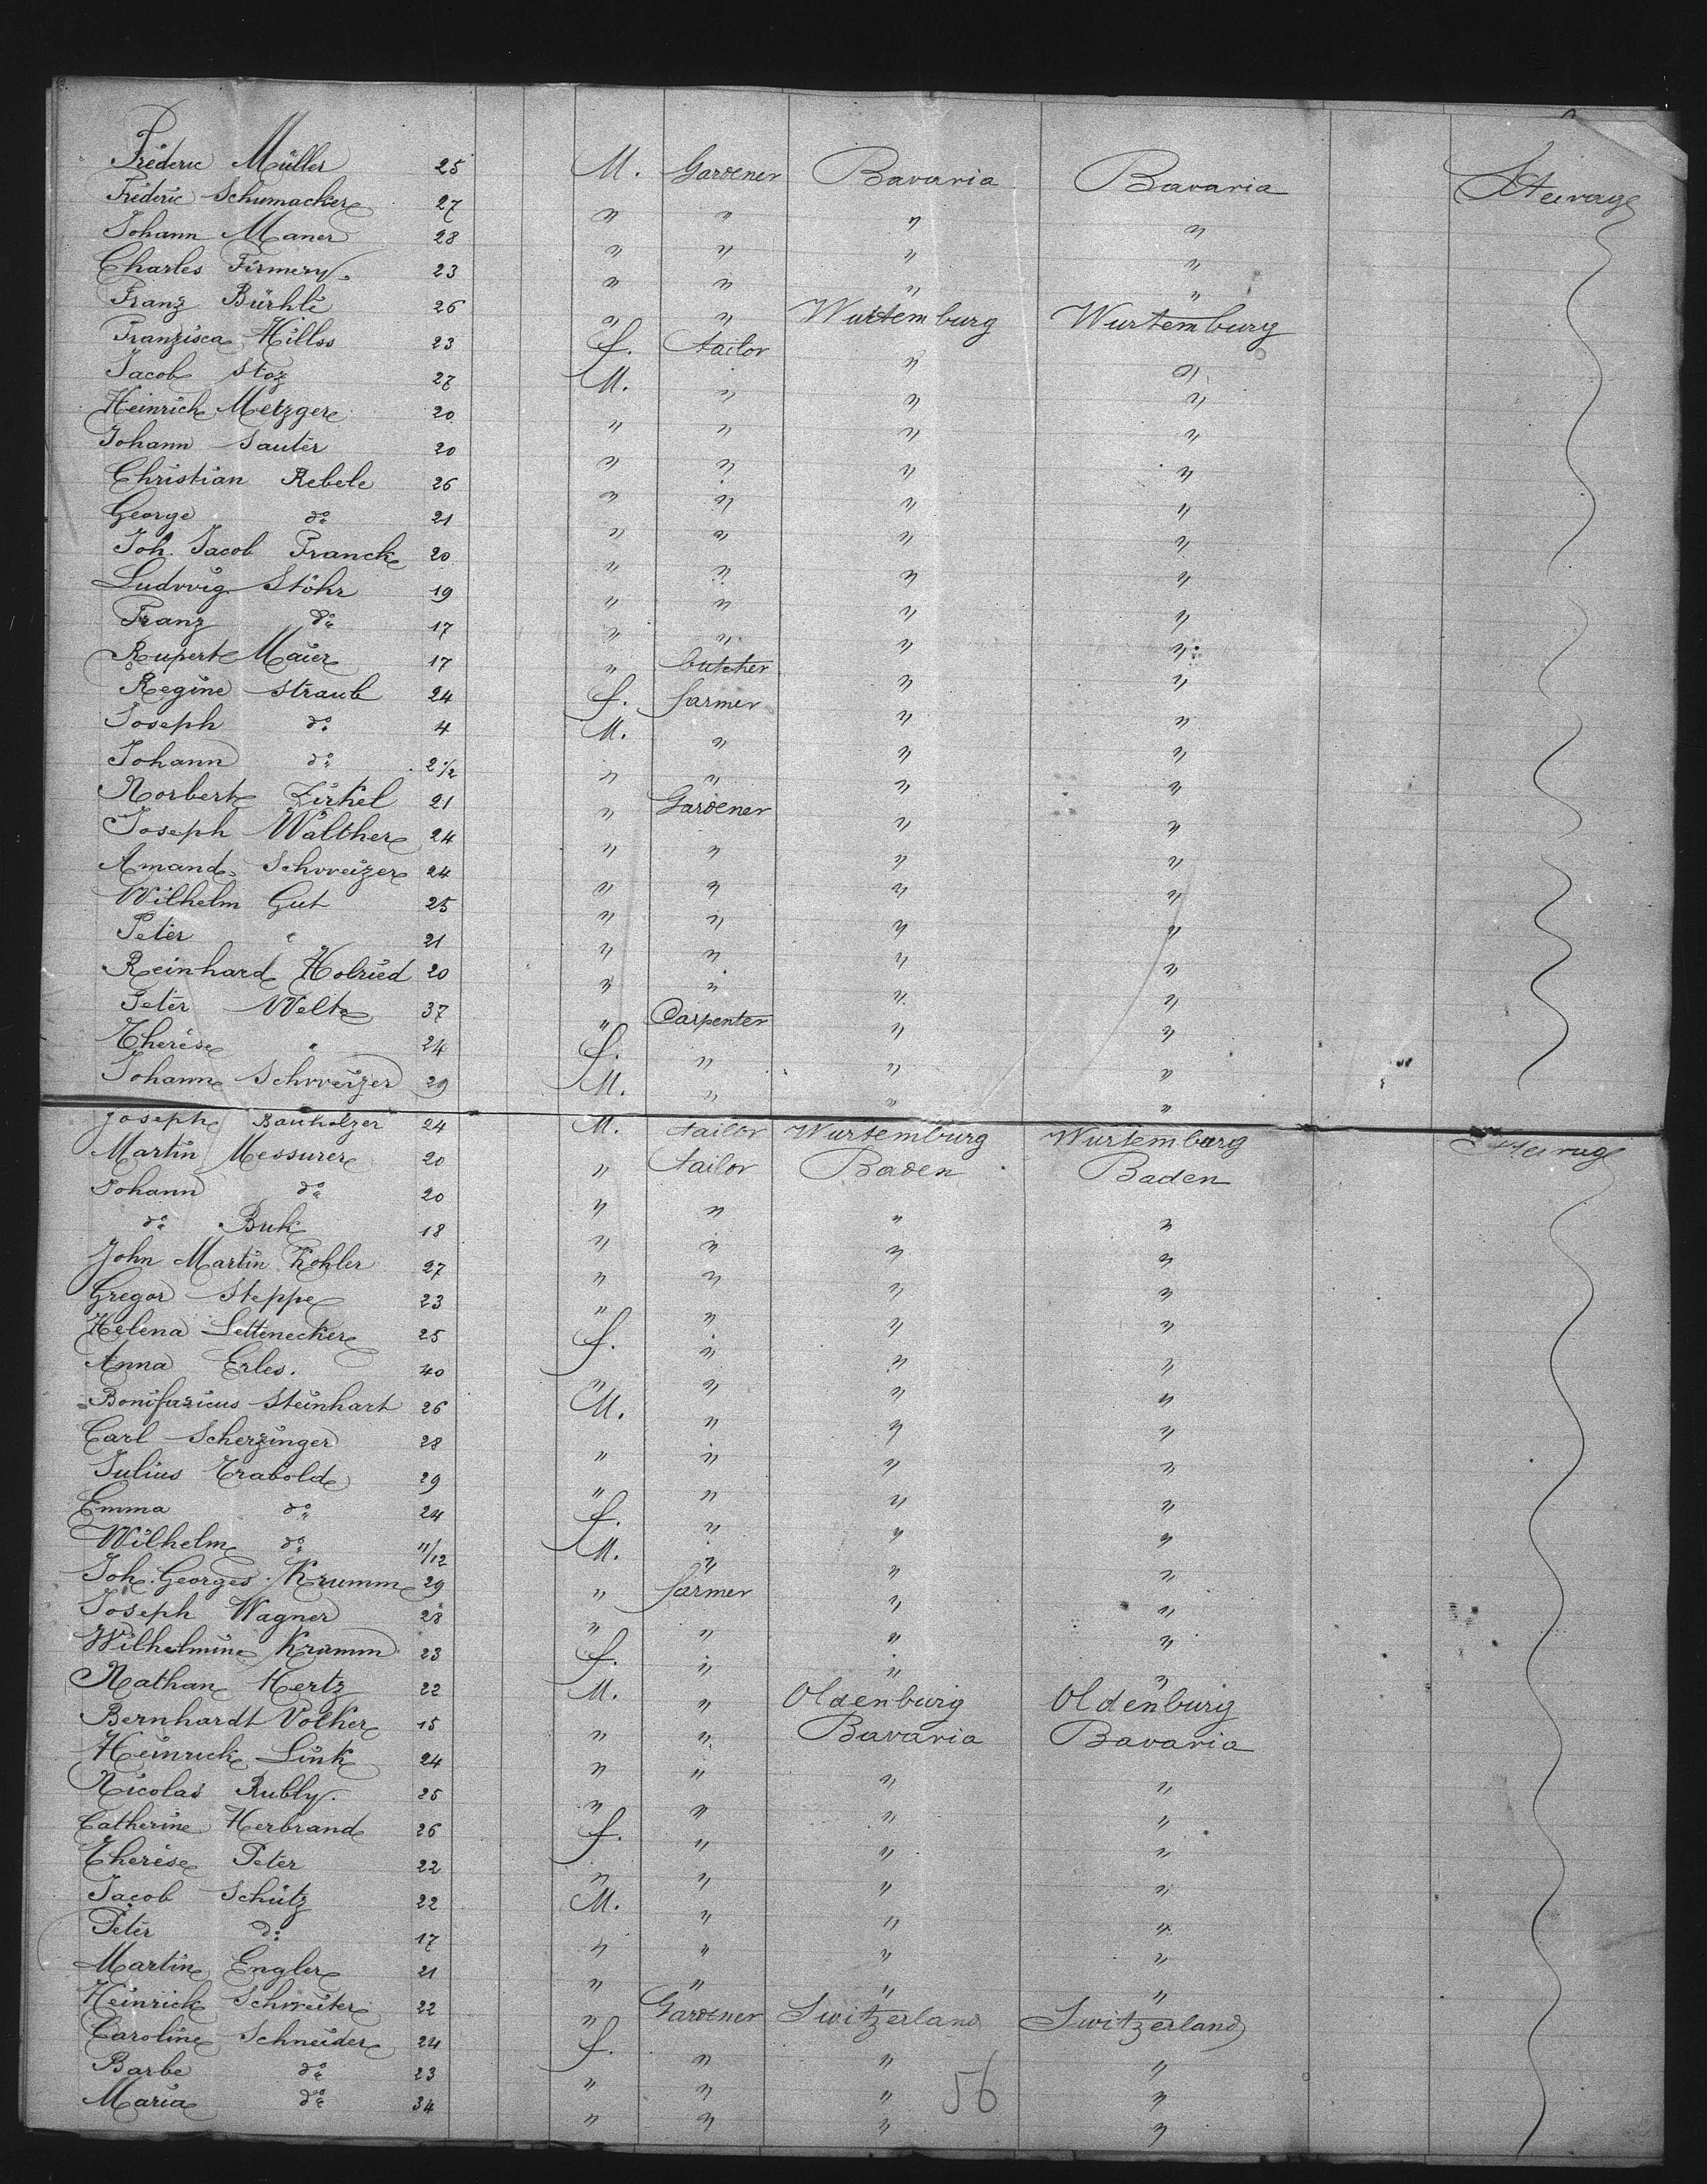 Fréderic Müller 25 M. Gardener Bavaria Bavaria Steerage
Fréderic Schumacker 27 " " " "
Johann Maner 28 " " " "
Charles Firmery. 23 " " " "
Franz Bürhle 26 " " Wurtemburg Wurtemburg
Franzisca Hillss 23 f. tailor " "
Jacob Stoz 27 M. " " "
Heinrich Metzger 20 " " " "
Johann Sauter 20 " " " "
Christian Rebele 26 " " " "
George do 21 " " " "
Joh. Jacob Franck 20 " " " "
Ludwig Stöhr 19 " " " "
Franz do 17 " " " "
Rupert Maier 17 " butcher " "
Regine Straub 24 f. farmer " "
Joseph do 4 M. " " "
Johann do 2 1/2 " " " "
Norbert Zirkel 21 " Gardener " "
Joseph Walther 24 " " " "
Amand. Schweizer 24 " " " "
Wilhelm Gut 25 " " " "
Peter " 21 " " " "
Reinhard Holried 20 " " " "
Peter Welte 37 " Carpenter " "
Therése " 24 f. " " "
Johann Schweizer 29 M. " " "
Joseph Bauholzer 24 M. tailor Wurtemburg Wurtemburg Steerage
Martin Messurer 20 " tailor Baden Baden
Johann do 20 " " " "
do Buk 18 " " " "
John Martin Kohler 27 " " " "
Gregor Steppe 23 " " " "
Helena Lettenecker 25 f. " " "
Anna Erles. 40 " " " "
Bonifazicus Steinhart 26 M. " " "
Carl Scherzinger 28 " " " "
Julius Trabold 29 " " " "
Emma do 24 f. " " "
Wilhelm do 11/12 M. " " "
Joh. Georges Krumm 29 " farmer " "
Joseph Wagner 28 " " " "
Wilhelmine Kramm 23 f. " " "
Nathan Hertz 22 M. " Oldenburg Oldenburg
Bernhardt Volker 15 " " Bavaria Bavaria
Heinrick Link 24 " " " "
Nicolas Rubly. 25 " " " "
Catherine Herbrand 26 f. " " "
Therése Peter 22 " " " "
Jacob Schütz 22 M. " " "
Peter do 17 " " " "
Martin Engler 21 " " " "
Heinrich Schweiter 22 " Gardener Switzerland Switzerland
Caroline Schneider 24 f. " " "
Barbe do 23 " " " "
Maria do 34 " " " "
56